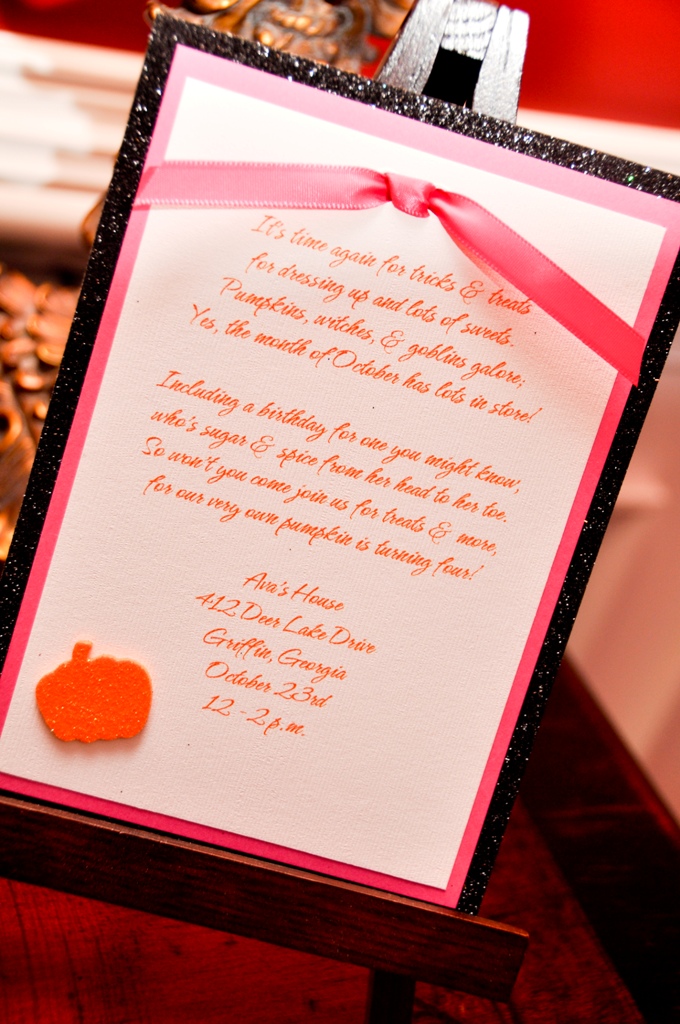 It's time again for tricks & treats
for dressing up and lots of sweets.
Pumpkins, witches, & goblins galore;
Yes, the month of October has lots in store!
Including a birthday for one you might know,
who's sugar & spice from her head to her toe.
So won't you come join us for treats & more,
for our very own pumpkin is turning four!
Ava's House
412 Deer Lake Drive
Griffin, Georgia
October 23rd
12 - 2 p.m.